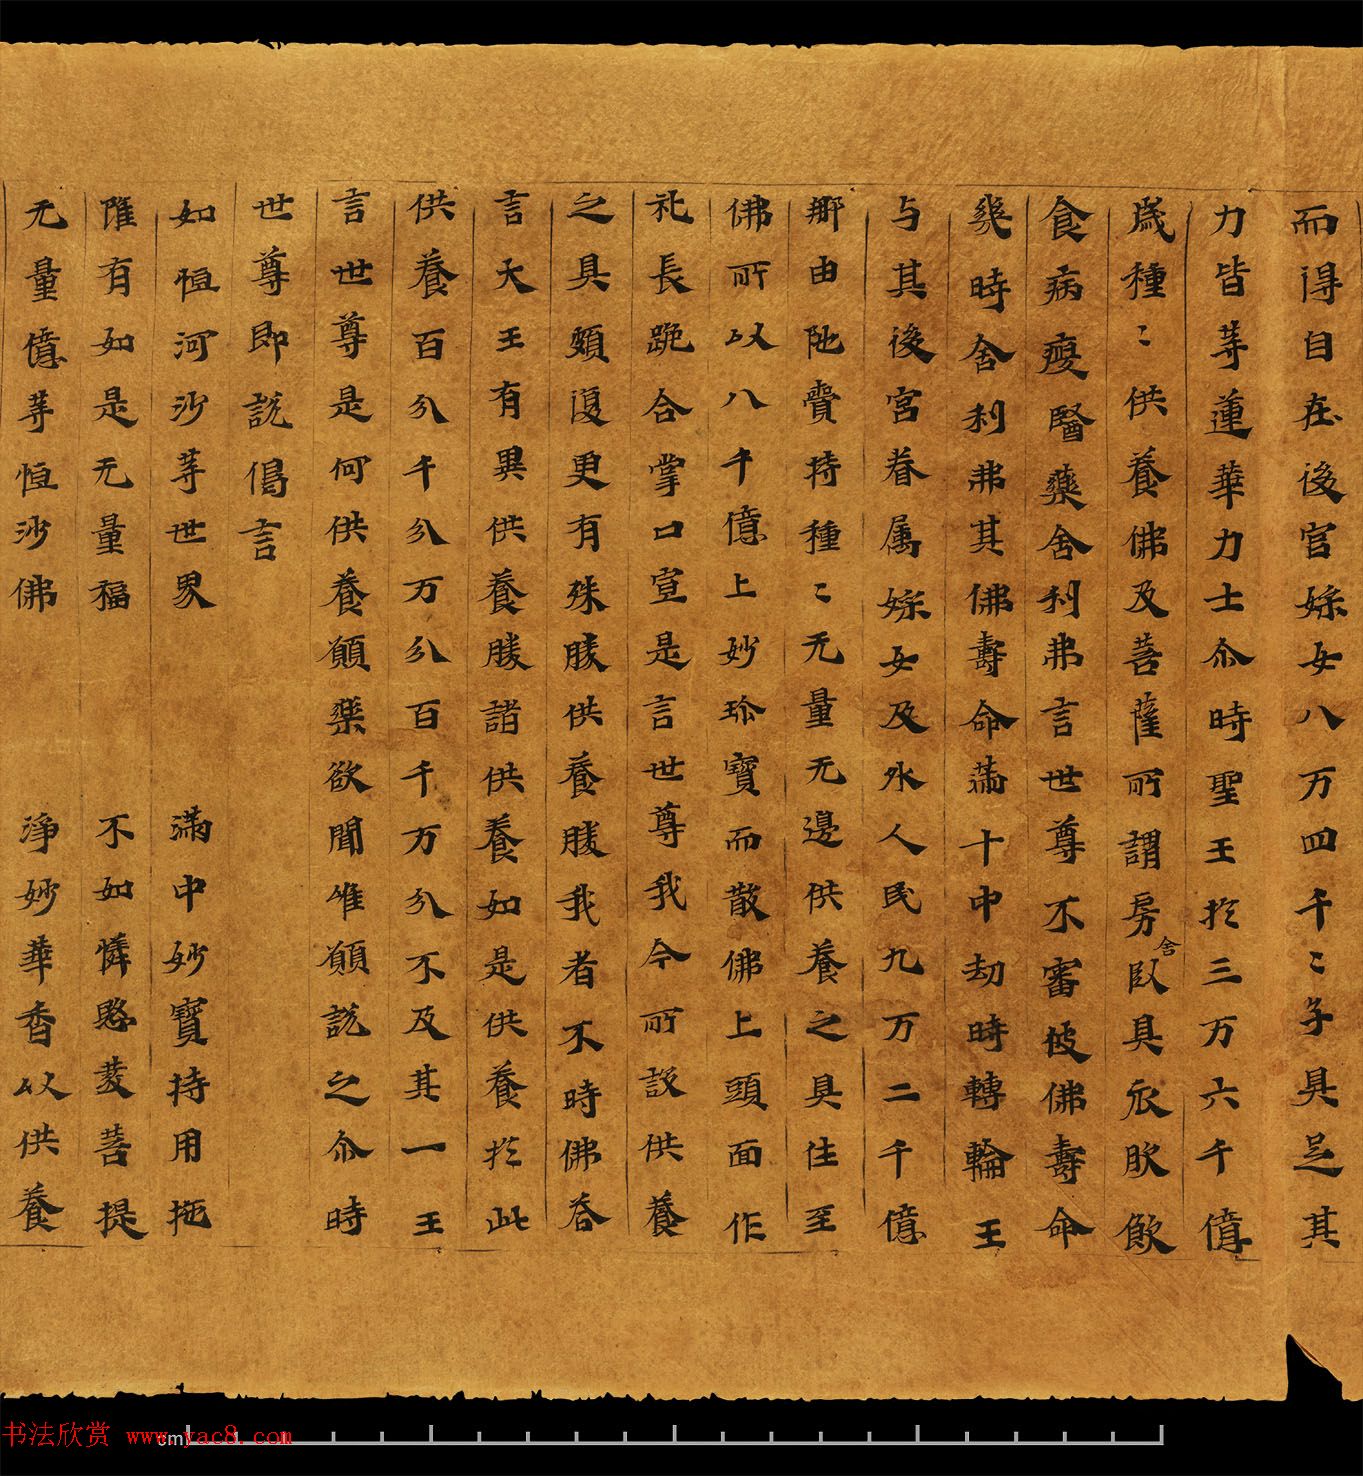 而得自在後宮婇女八万四千二子具足其
力皆等蓮華力士尒時聖王於三万六千億
歲種〻供養佛及菩薩所謂房舍臥具衣服飲
食病瘦醫藥舍利弗言世尊不審彼佛壽命
幾時舍利弗其佛壽命滿十中劫時轉輪王
与其後宮眷属婇女及外人民九万二千億
那由他賷持種〻无量无邊供養之具往至
佛所以八千億上妙珎寶而散佛上頭面作
礼長跪合掌口宣是言世尊我今所設供養
之具頗復更有殊勝供養勝我者不時佛荅
言大王有異供養勝諸供養如是供養於此
供養百分千分万分百千万分不及其一王
言世尊是何供養願樂欲聞唯願說之尒時
世尊即說偈言
如恒河沙等世界 滿中妙寶持用施
隨有如是无量福 不如憐愍發菩提
无量億等恒沙佛 淨妙華香以供養
cm
书法欣赏 www.yac8.com